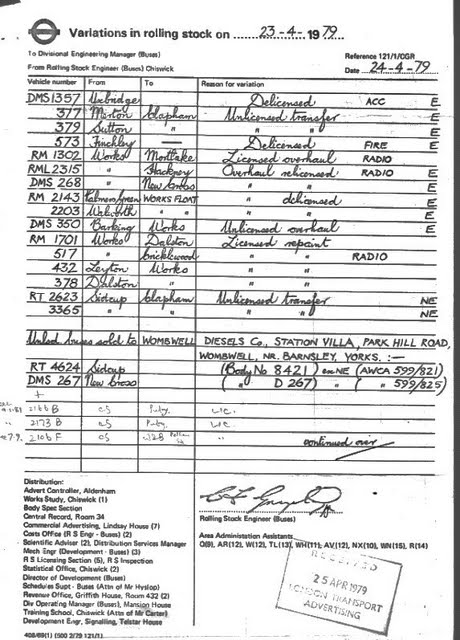 Variations in rolling stock on 23-4-1979
To Divisional Engineering Manager (Buses)
Reference 121/1/0GR
From Rolling Stock Engineer (Buses) Chiswick
Date 24-4-79
Vehicle number From To Reason for variation
DMS 1357 Uxbridge — Delicensed ACC E
377 Merton Clapham Unlicensed transfer E
379 Sutton " " " E
573 Finchley — Delicensed FIRE E
RM 1302 Works Mortlake Licensed overhaul RADIO E
RML 2315 " Hackney Overhaul relicensed RADIO E
DMS 268 " New Cross " " E
RM 2143 Palmers Green WORKS FLOAT " delicensed E
2203 Walworth " " " E
DMS 350 Barking Works Unlicensed overhaul E
RM 1701 Works Dalston Licensed repaint
517 " Cricklewood " " RADIO
432 Leyton Works " "
378 Dalston " " "
RT 2623 Sidcup Clapham Unlicensed transfer NE
3365 " " " " NE
Unlicd buses sold to WOMBWELL DIESELS Co., STATION VILLA, PARK HILL ROAD,
WOMBWELL, NR. BARNSLEY, YORKS. :—
RT 4624 Sidcup (Body No 8421) ex NE (AWCA 599/821)
DMS 267 New Cross ( " D 267) " ( " 599/825)
+
2166 B
2173 B
2106 F
continued over
Distribution:
Advert Controller, Aldenham
Works Study, Chiswick (1)
Body Spec Section
Central Record, Room 34
Commercial Advertising, Lindsay House (7)
Costs Office (R S Engr - Buses) (2)
Scientific Adviser (2), Distribution Services Manager
Mech Engr (Development - Buses) (3)
R S Licensing Section (5), R S Inspection
Statistical Office, Chiswick (2)
Director of Development (Buses)
Schedules Supt - Buses (Attn of Mr Hyslop)
Revenue Office, Griffith House, Room 432 (2)
Div Operating Manager (Buses), Mansion House
Training School, Chiswick (Attn of Mr Carter)
Development Engr, Signalling, Telstar House
Rolling Stock Engineer (Buses)
Area Administration Assistants
O(9), AR(12), W(12), TL(13), WH(11), AV(12), NX(10), WN(15), R(14)
RECEIVED
25 APR 1979
LONDON TRANSPORT
ADVERTISING
408/69(1) (500 2/79 121/1)